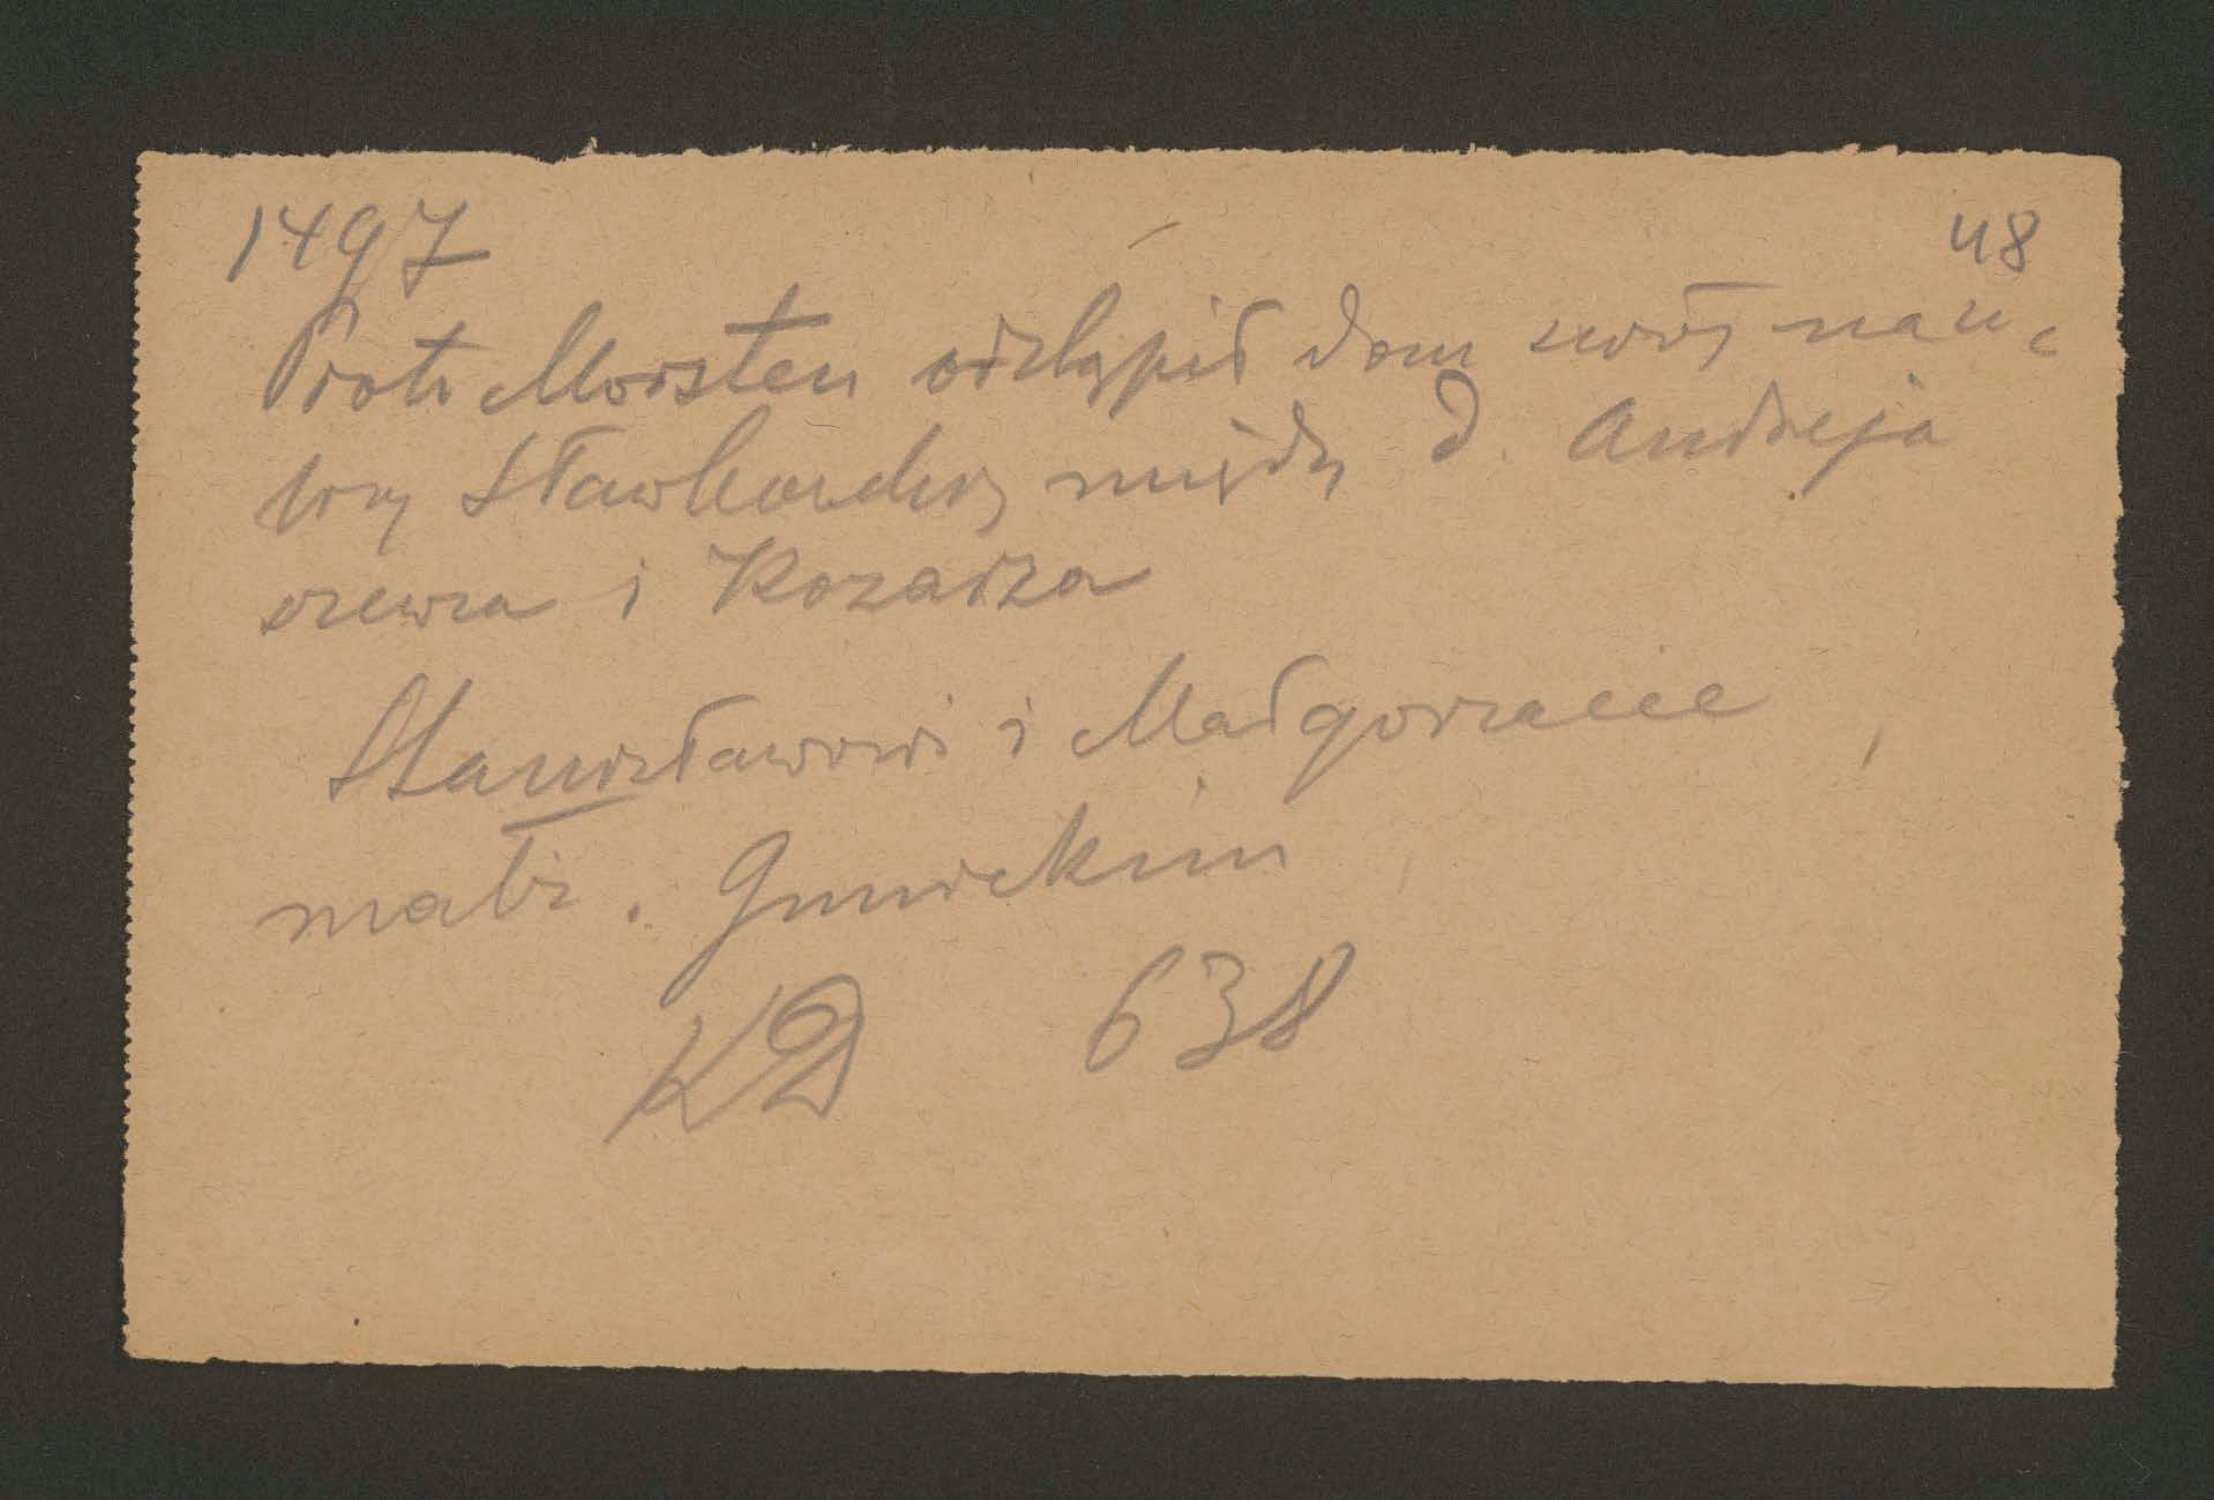 1497
48
Piotr Morsten odstąpił dom swój na u-
licy Sławkowskiej między d. Andrzeja
szewca i Kozarza
Stanisławowi i Małgorzacie
małż.
KD 638